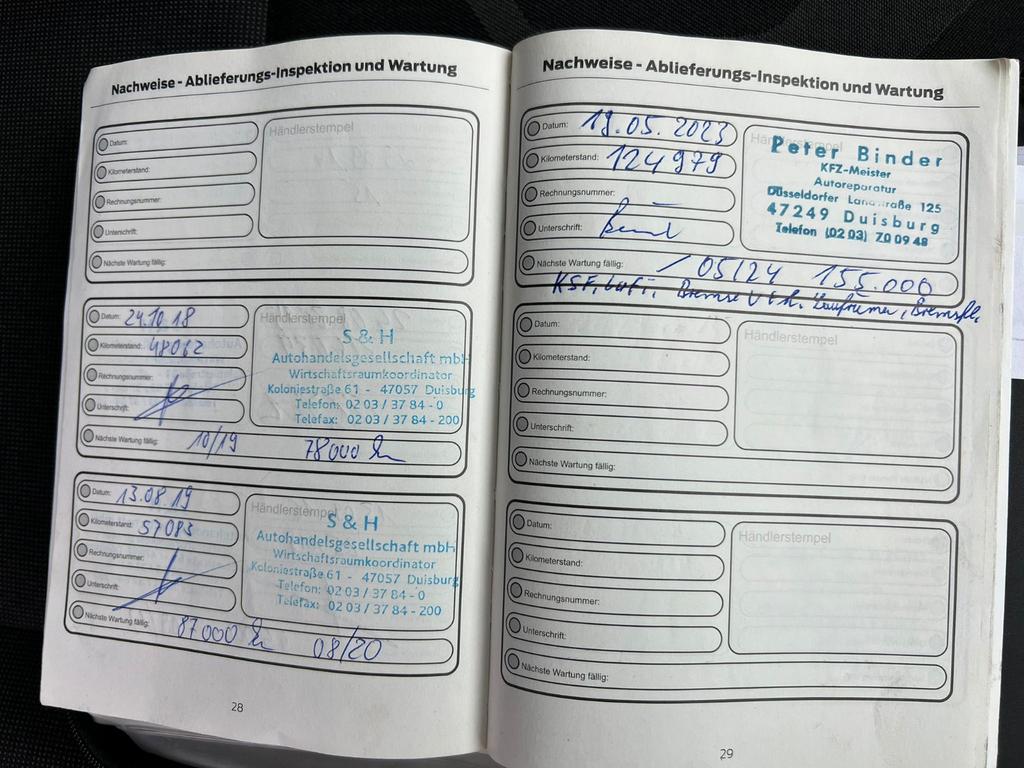 Nachweise - Ablieferungs-Inspektion und Wartung
Datum:
Händlerstempel
Kilometerstand:
Rechnungsnummer:
Unterschrift:
Nächste Wartung fällig:
Datum: 24.10.18
Händlerstempel
Kilometerstand: 48062
Rechnungsnummer:
Unterschrift:
S & H
Autohandelsgesellschaft mbH
Wirtschaftsraumkoordinator
Koloniestraße 61 - 47057 Duisburg
Telefon: 02 03 / 37 84 - 0
Telefax: 02 03 / 37 84 - 200
Nächste Wartung fällig: 10/19 78000 km
Datum: 13.08.19
Händlerstempel
Kilometerstand: 57083
Rechnungsnummer:
Unterschrift:
S & H
Autohandelsgesellschaft mbH
Wirtschaftsraumkoordinator
Koloniestraße 61 - 47057 Duisburg
Telefon: 02 03 / 37 84 - 0
Telefax: 02 03 / 37 84 - 200
Nächste Wartung fällig: 87000 km 08/20
28
Nachweise - Ablieferungs-Inspektion und Wartung
Datum: 19.05.2023
Händlerstempel
Kilometerstand: 124979
Rechnungsnummer:
Unterschrift:
Peter Binder
KFZ-Meister
Autoreparatur
Düsseldorfer Landstraße 125
47249 Duisburg
Telefon (02 03) 70 09 48
Nächste Wartung fällig: / 05/24 155.000
KSF, Lufi, Bremse
Datum:
Händlerstempel
Kilometerstand:
Rechnungsnummer:
Unterschrift:
Nächste Wartung fällig:
Datum:
Händlerstempel
Kilometerstand:
Rechnungsnummer:
Unterschrift:
Nächste Wartung fällig:
29